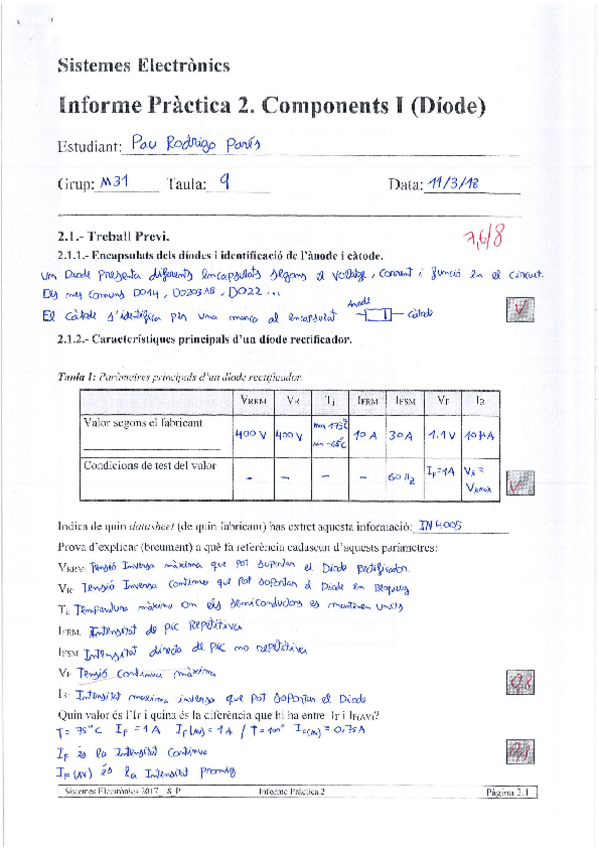 Sistemes Electrònics
Informe Pràctica 2. Components I (Díode)
Estudiant: Pau Rodrigo Parés
Grup: M31 Taula: 9 Data: 11/3/18
2.1.- Treball Previ. 7,6/8
2.1.1.- Encapsulats dels díodes i identificació de l'ànode i càtode.
Un Diode presenta diferents encapsulats segons el voltatge, corrent i funció en el circuit.
Els mes comuns DO14, DO203AB, DO22...
El Càtode s'identifica per una marca al encapsulat Anode Càtode
2.1.2.- Característiques principals d'un díode rectificador.
Taula 1: Paràmetres principals d'un díode rectificador.
VRRM VR Tj IFRM IFSM VF IR
Valor segons el fabricant 400 V 400 V max 175ºC min -65ºC 10 A 30 A 1.1 V 10 µA
Condicions de test del valor - - - - 60 Hz IF=1A VR = VRmax
Indica de quin datasheet (de quin fabricant) has extret aquesta informació: IN4005
Prova d'explicar (breument) a què fa referència cadascun d'aquests paràmetres:
VRRM: Tensió Inversa màxima que pot soportar el Díode rectificador.
VR: Tensió Inversa Continua que pot soportar el Díode en Bloqueig
Tj: Temperatura màxima on els semiconductors es mantenen units
IFRM: Intensitat de pic Repetitiva
IFSM: Intensitat directa de pic no repetitiva
VF: Tensió Continua màxima
IR: Intensitat maxima inversa que pot soportar el Díode 0,8
Quin valor és l'IF i quina és la diferència que hi ha entre IF i IF(AV)?
T= 75ºC IF = 1A IF(AV) = 1A / T=100º IF(AV) = 0,75A
IF és la Intensitat Continua
IF(AV) és la Intensitat promig
Sistemes Electrònics 2017_18_P Informe Pràctica 2 Pàgina 2.1